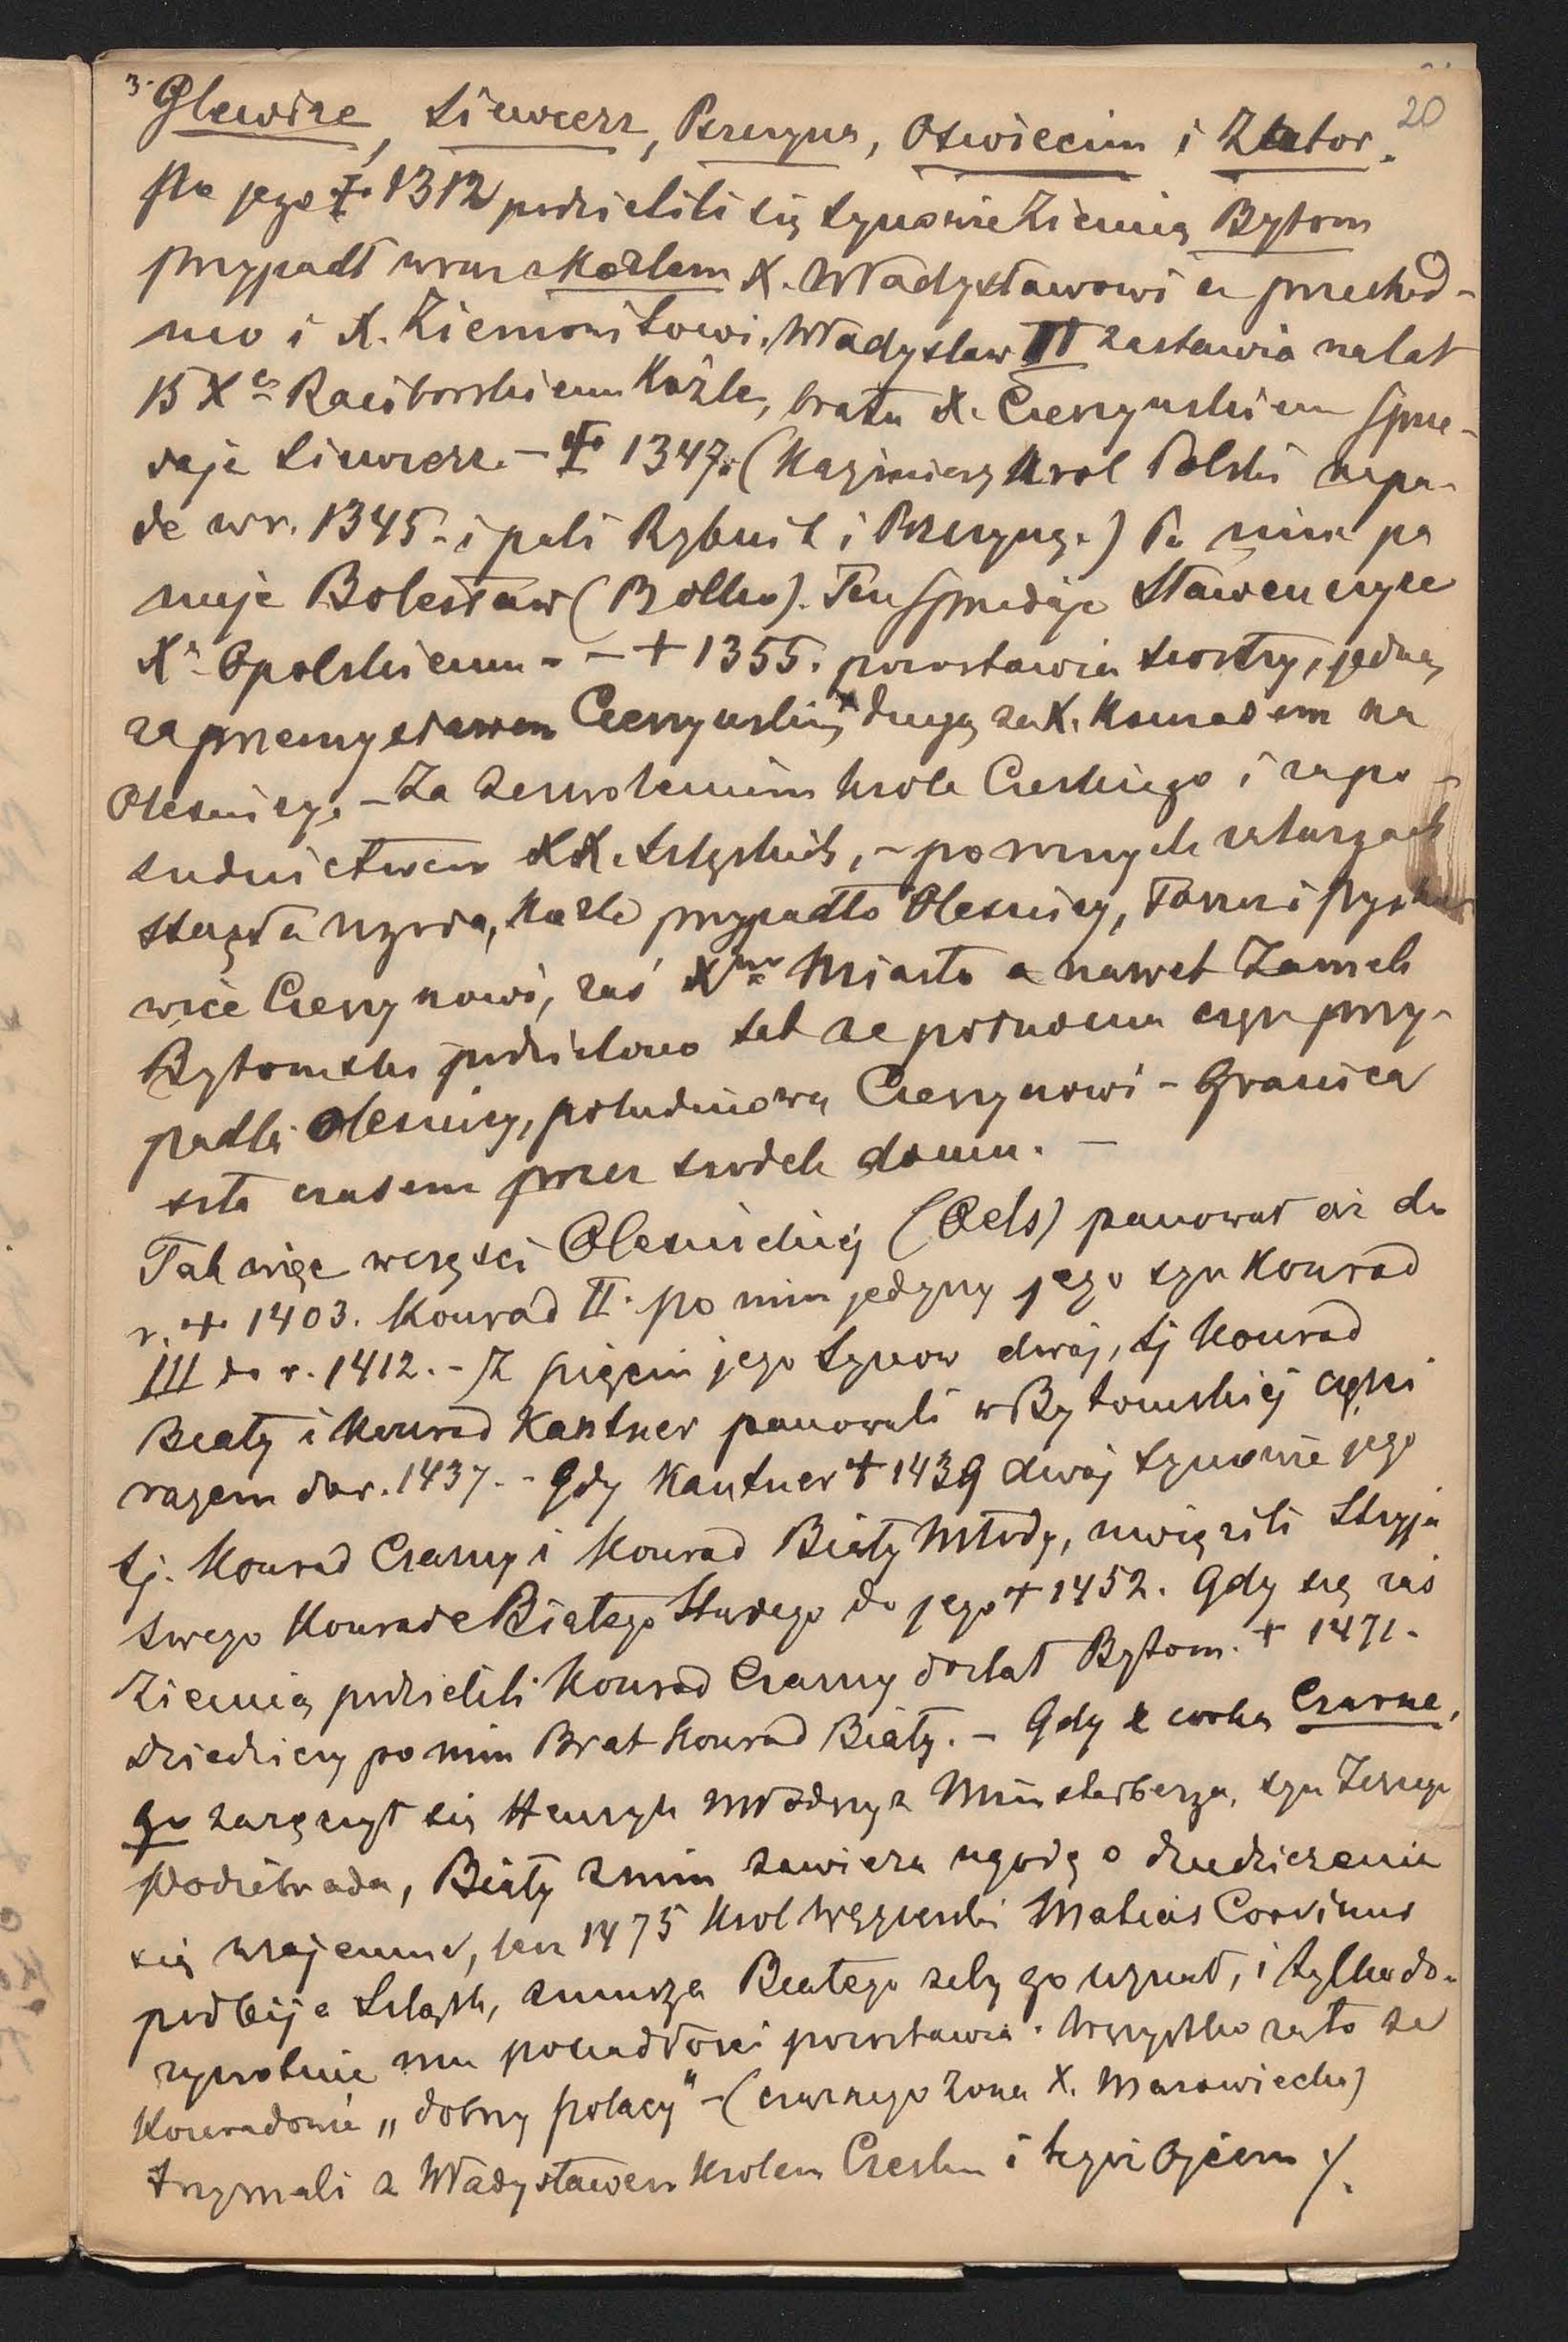 3. Glewize, Siewierz, Pszczyna, Oswiecim i Zator. 20
Po jego + 1312 podzielili się synowie Ziemią Bytom
przypadł wraz z Kozlem X. Władysławowi a przechod-
nio i X. Ziemowitowi. Władysław II zastawia na lat
15 Xu Raciborskiemu Koźle, bratu X. Cieszynskiem sprze-
daje Siewierz. – + 1347. (Kazimierz Krol Polski napa-
da w r. 1345. i pali Rybnik i Pszczynę.) Po nim pa
nuje Bolesław (Bolko). Ten sprzedaje Sławenczyce
Xu Opolskiemu – – + 1355. pozostawia siostry, jedną
za Przemysławem Cieszynskim drugą za X. Konradem na
Olesnicy. – Za zezwoleniem krola Czeskiego i za po-
sudnictwem XX. Szląskich, – po roznych zatargach
stanęła ugoda, Kozle przypadło Olesnicy, Toszek i Pysko
wice Cieszynowi, zaś Miasto a nawet Zamek
Bytomski podzielono tak ze północna część przy-
padła Olesnicy, południowa Cieszynowi – Granica
szła czasem przez srodek domu. –
Tak więc w części Olesnickiej (Oels) panował aż do
r. + 1403. Konrad II. po nim jedyny jego syn Konrad
III do r. 1412. – Z pięciu jego synow dwaj, tj Konrad
Biały i Konrad Kantner panowali w Bytomskiej częsci
razem do r. 1437. – Gdy Kantner + 1439 dwaj synowie jego
tj. Konrad Czarny i Konrad Biały Młody, uwięzili Stryja
swego Konrada Białego Starego do jego + 1452. Gdy się zaś
Ziemią podzielili Konrad Czarny dostał Bytom. + 1471.
Dziedziczy po nim Brat Konrad Biały. – Gdy z corką Czarne,
go zaręczył się Henryk Młodszy z Münsterberga, syn Jerzego
Podiebrada, Biały z nim zawiera ugodę o dziedziczenie
się wzajemne, lecz 1475 Krol Węgierski Mateas Corvinus
podbija Szląsk, zmusza Białego zeby go uznał, i tylko do-
zywotnie mu posiadłości pozostawia. Wszystko za to ze
Konradowie „dobrzy polacy" – (czarnego zona X. Mazowiecka)
trzymali z Władysławem Krolem Czeskim i tegoż Ojcem /.